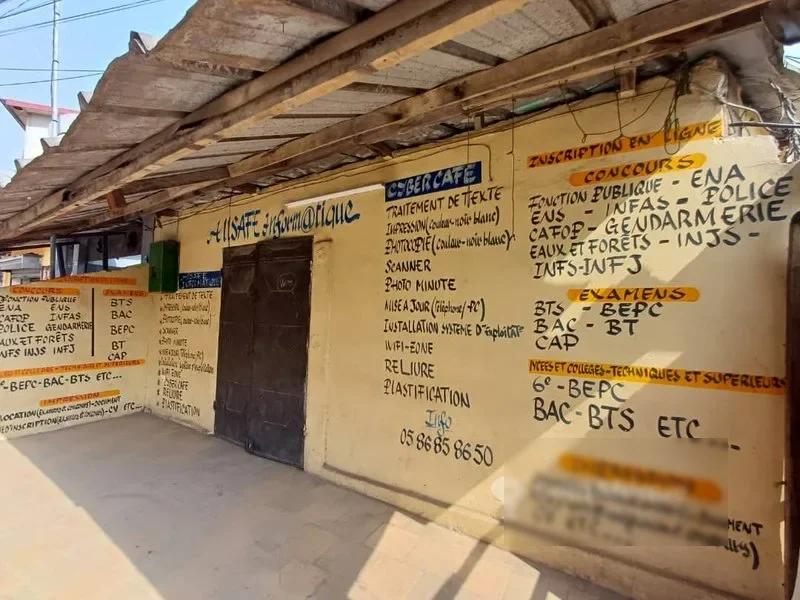 CONCOURS
FONCTION PUBLIQUE
ENA ENS
CAFOP INFAS
POLICE GENDARMERIE
EAUX ET FORÊTS
INFS INJS INFJ
BTS
BAC
BEPC
BT
CAP
6e-BEPC-BAC-BTS ETC...
IMPRESSION
ALLSAFE inform@tique
TRAITEMENT DE TEXTE
SCANNER
PHOTO MINUTE
WIFI ZONE
CYBERCAFE
RELIURE
PLASTIFICATION
CYBERCAFE
TRAITEMENT DE TEXTE
IMPRESSION (couleur-noir blanc)
PHOTOCOPIE (couleur-noir blanc)
SCANNER
PHOTO MINUTE
MISE A JOUR (Téléphone/-PC)
INSTALLATION SYSTEME D'exploitatº
WIFI-ZONE
RELIURE
PLASTIFICATION
Info
05 86 85 86 50
INSCRIPTION EN LIGNE
CONCOURS
FONCTION PUBLIQUE - ENA
ENS - INFAS - POLICE
CAFOP - GENDARMERIE
EAUX ET FORÊTS - INJS -
INFS-INFJ
EXAMENS
BTS - BEPC
BAC - BT
CAP
LYCEES ET COLLEGES-TECHNIQUES ET SUPERIEURS
6e -BEPC
BAC-BTS ETC...